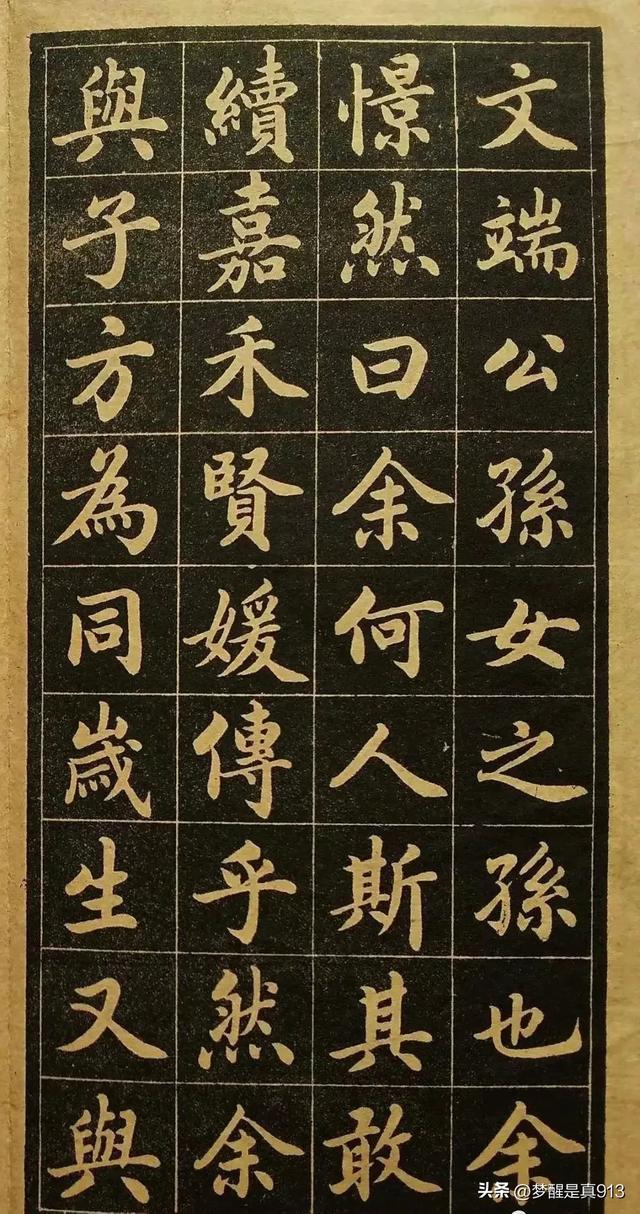 文端公孫女之孫也余
憬然曰余何人斯其敢
續嘉禾賢媛傳乎然余
與子方為同歲生又與
头条 @梦醒是真913